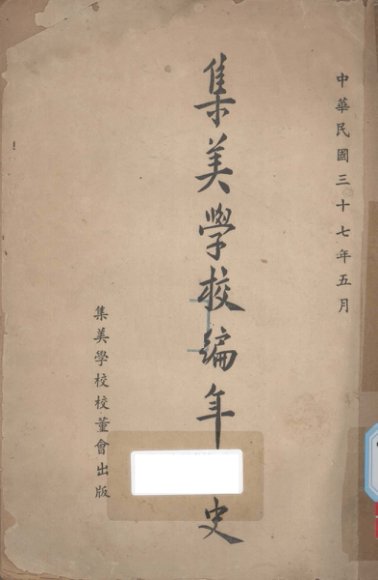 中華民國三十七年五月
集美學校編年史
集美學校校董會出版